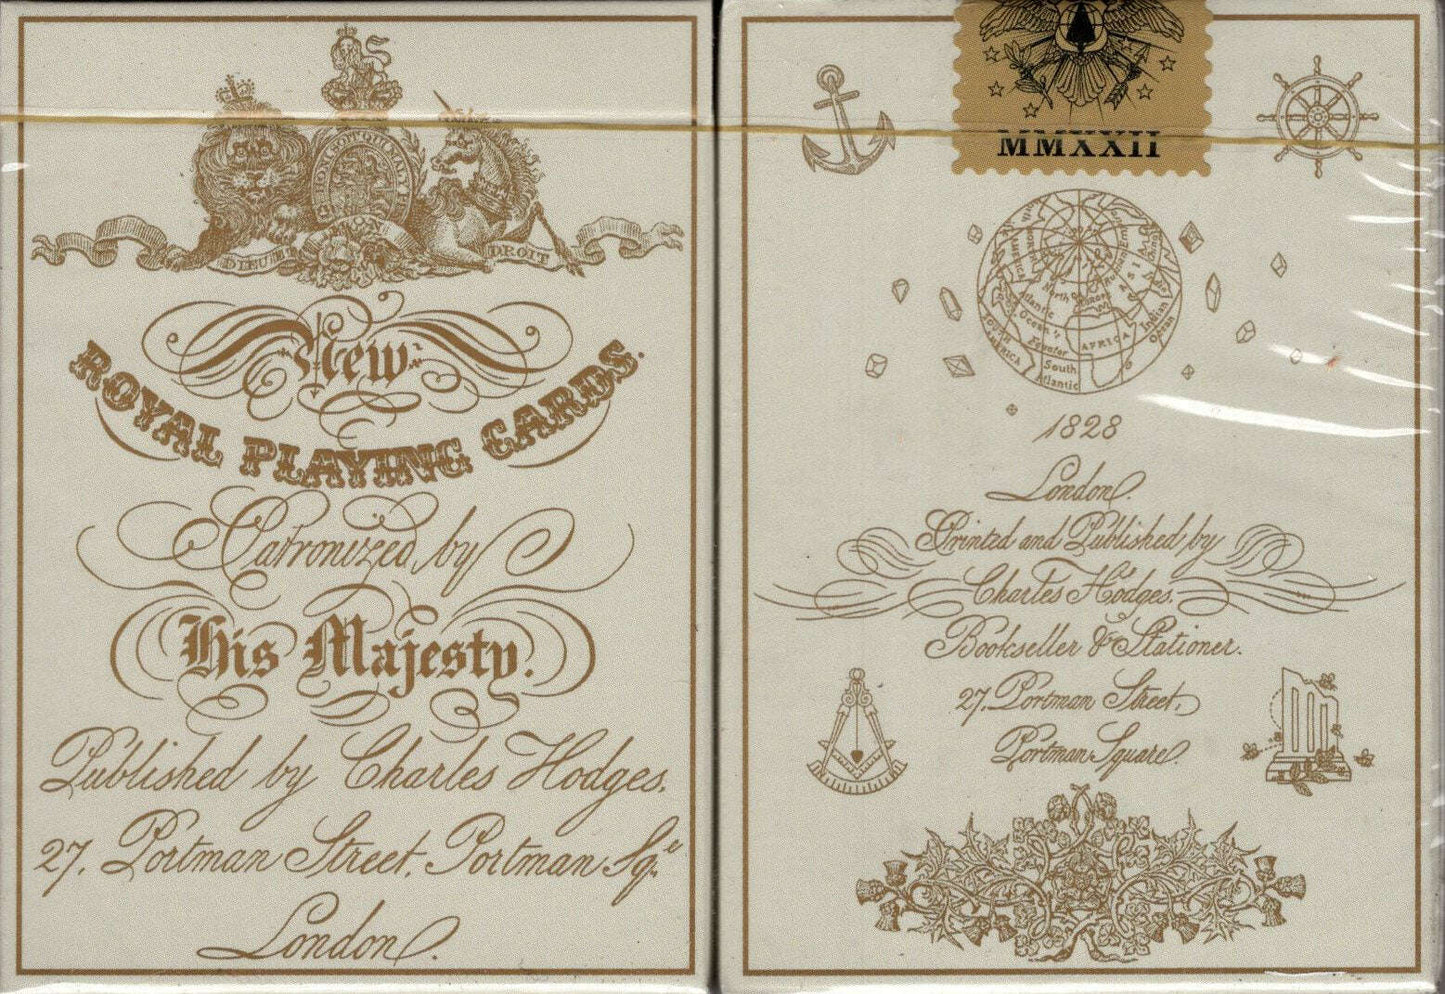 HONI SOIT QUI MAL Y PENSE
DIEU ET MON DROIT
New
ROYAL PLAYING CARDS.
Patronized by
His Majesty.
Published by Charles Hodges.
27, Portman Street, Portman Sqe
London.
MMXXII
North
Atlantic
Ocean
Equator
AFRICA
ASI
Indian
Ocean
SOUTH
AMERICA
South
Atlantic
1828
London.
Printed and Published by
Charles Hodges.
Bookseller & Stationer.
27, Portman Street,
Portman Square.